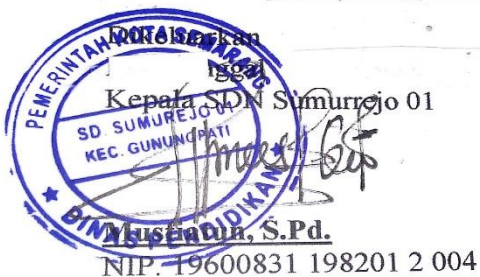 Dikeluarkan
nggal
Kepala SDN Sumurrejo 01
PEMERINTAH KOTA SEMARANG
SD. SUMUREJO 01
KEC. GUNUNGPATI
DINAS PENDIDIKAN
Mustiatun, S.Pd.
NIP. 19600831 198201 2 004